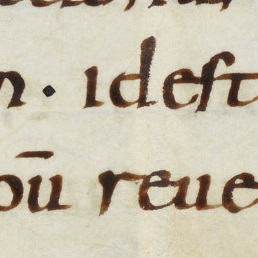 n · idest
ou̅ reue